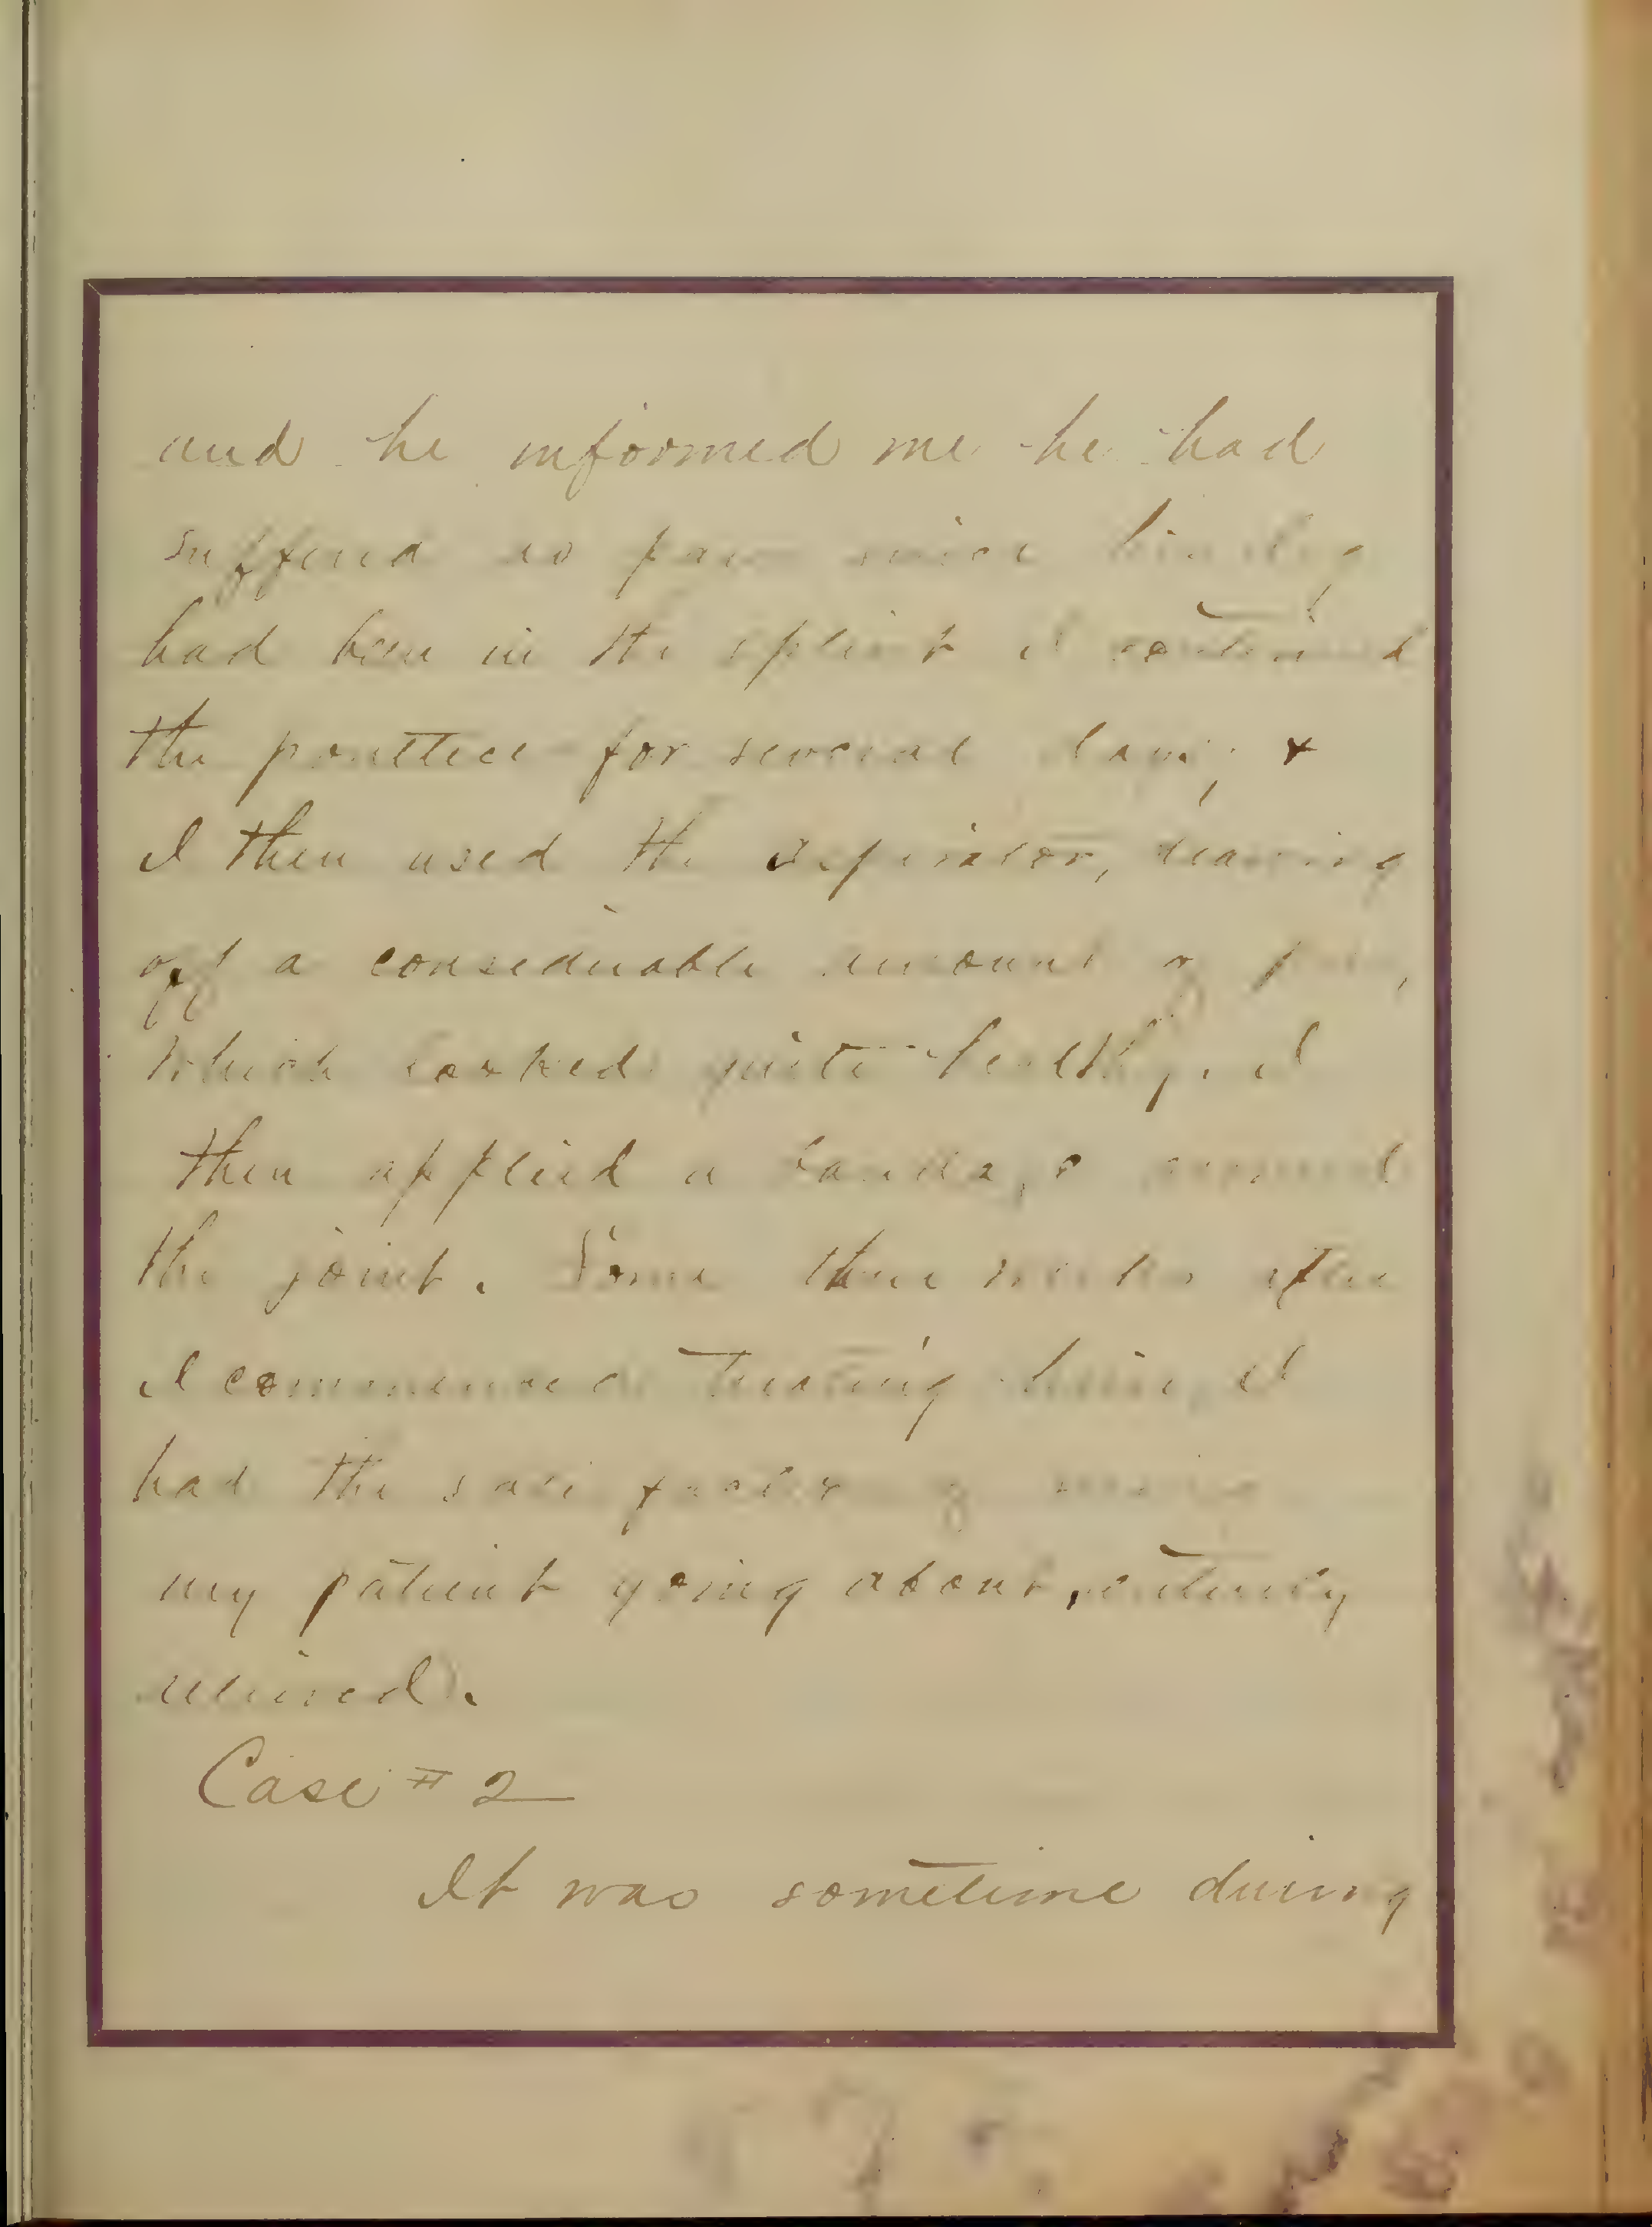 and he informed me he had
suffered no pain since his leg
had been in the splint I continued
the poultice for several days, &
I then used the aspirator, drawing
off a considerable amount of pus,
which looked quite healthy. I
then applied a bandage around
the joint. Some three weeks after
I commenced treating him, I
had the of seeing
my patient going about, entirely
relieved.
Case # 2
It was sometime during